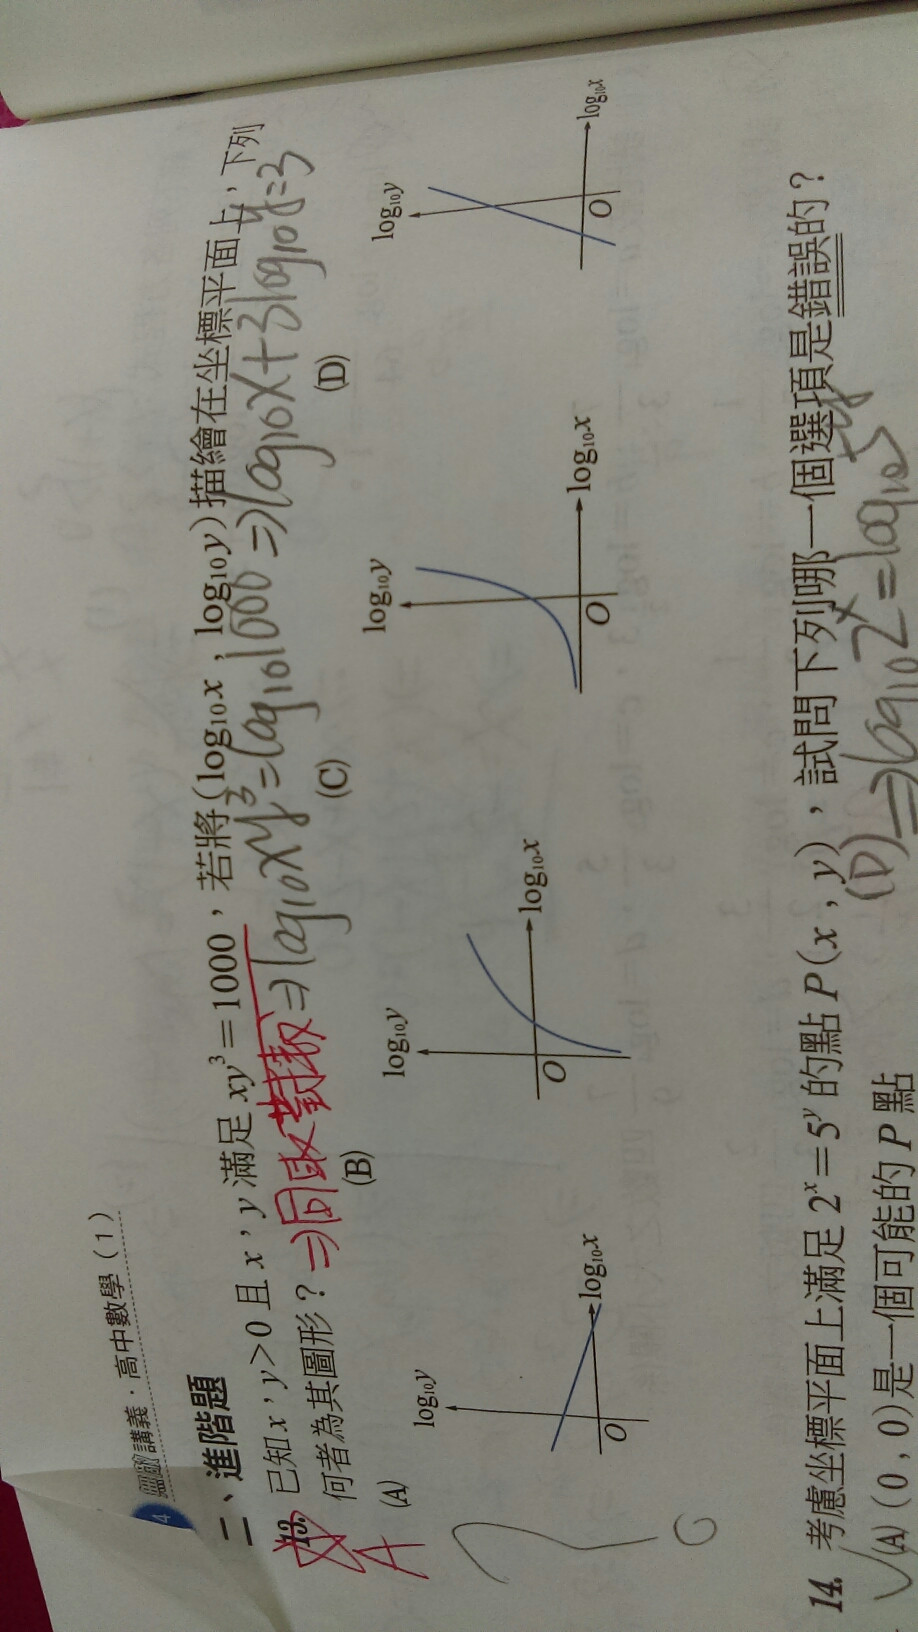 4 講義．高中數學（1）
二、進階題
13. 已知 x，y＞0 且 x，y 滿足 xy³＝1000，若將(log₁₀x，log₁₀y)描繪在坐標平面上，下列
何者為其圖形？ ⇒同取對數⇒log₁₀xy³=log₁₀1000⇒log₁₀x+3log₁₀y=3
A
(A) (B) (C) (D)
log₁₀y log₁₀x O
log₁₀y log₁₀x O
log₁₀y log₁₀x O
log₁₀y log₁₀x O
?
14. 考慮坐標平面上滿足 2ˣ＝5ʸ 的點 P(x，y)，試問下列哪一個選項是錯誤的？
(D)⇒log₁₀2ˣ=log₁₀5ʸ
(A) (0，0)是一個可能的 P 點